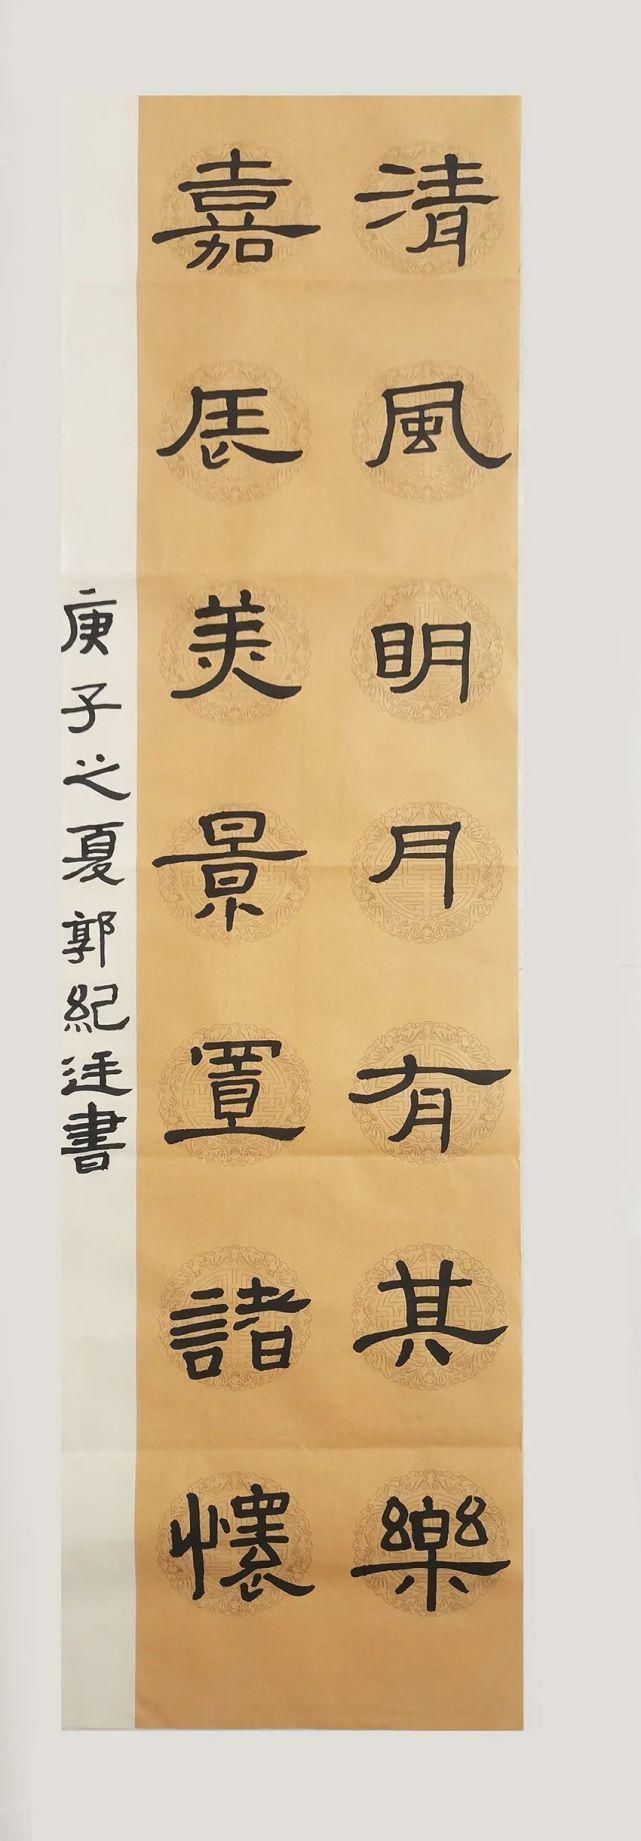 清風明月有其樂
嘉辰美景置諸懷
庚子之夏郭紀廷書